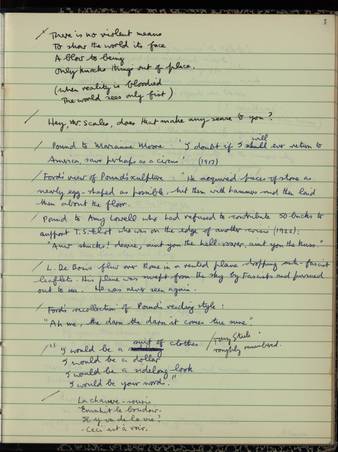 3
There is no violent means
To show the world its face
A blow to being
Only knocks things out of place.
(when reality is bloodied
The world sees only fist)
Hey, Mr. Scales, does that make any sense to you?
Pound to Marianne Moore: "I doubt if I will ever return to
America, save perhaps as a circus!" (1917)
Ford's view of Pound's sculpture: "He acquired pieces of stone as
nearly egg-shaped as possible, hit them with hammers and then laid
them about the floor.
Pound to Amy Lowell who had refused to contribute 50 bucks to
support T.S. Eliot who was on the edge of another crisis (1922):
"Aw shucks! dearie, aint you the hell-roarer, aint you the kuss."
L. De Bosis flew over Rome in a rented plane dropping anti-fascist
leaflets. His plane was swept from the sky by Fascists and pursued
out to sea. He was never seen again.
Ford's recollection of Pound's reading style:
"Ah me, the darn the darn it comes toe sune"
"I would be a suit of clothes
I would be a dollar
I would be a sidelong look
I would be your word."
roughly remembered.
La chauve-souris
Emplit le boudoir.
Il y va de la vie!
- Ceci est à voir.